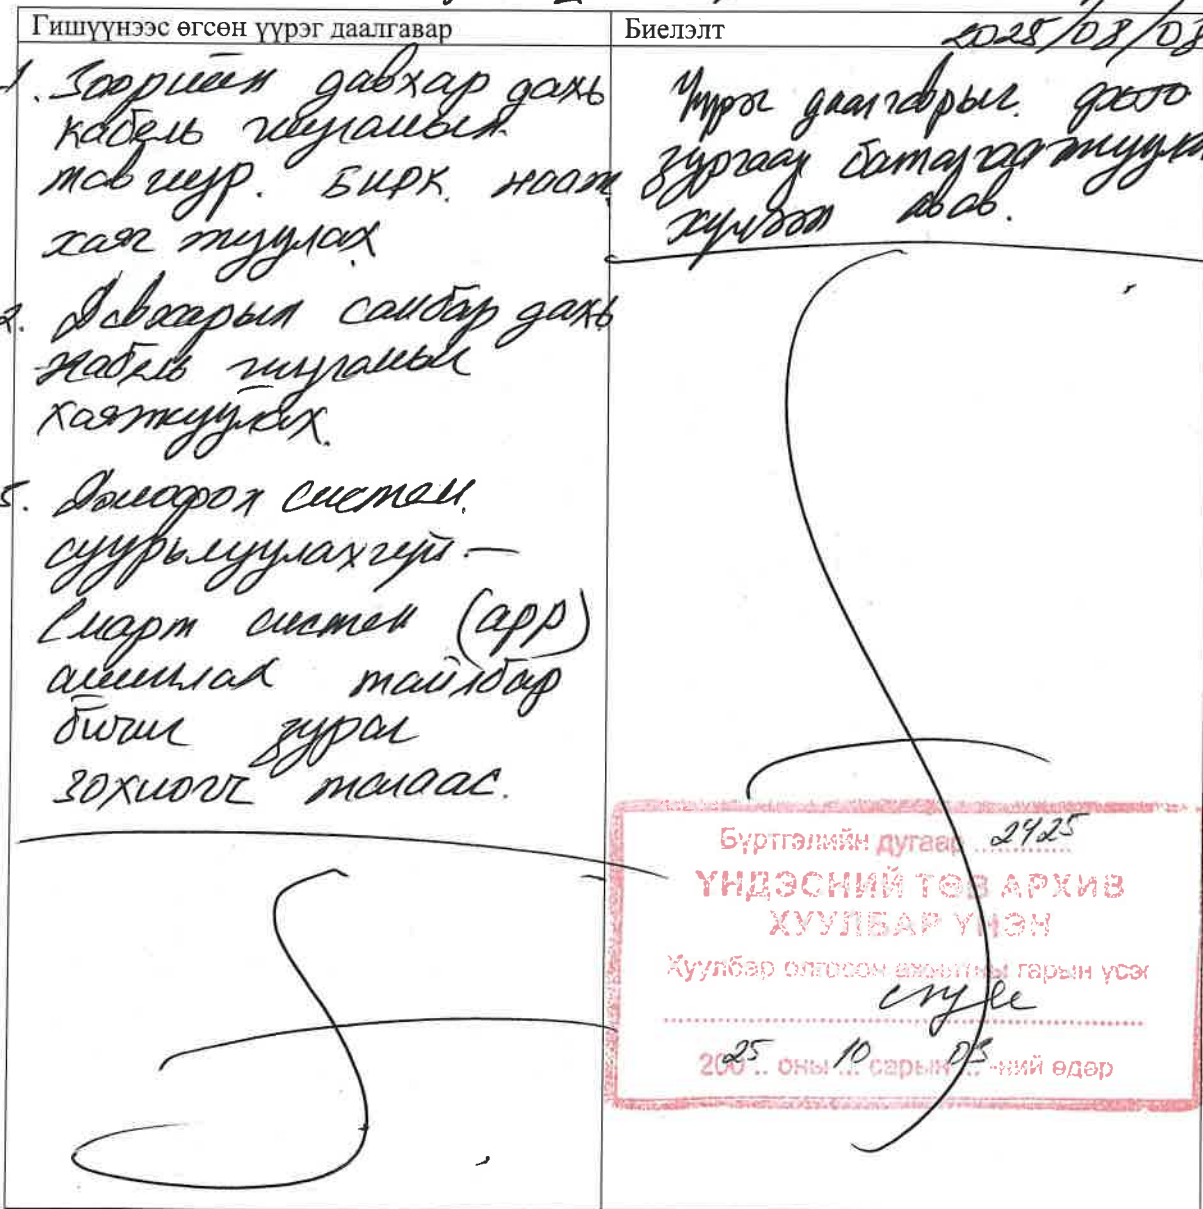 Гишүүнээс өгсөн үүрэг даалгавар
1. Зоорийн давхар дахь
кабель шугамын
тавиур. БИРК. наах
хаяг жуулах
2. Давхарын самбар дахь
кабель шугамын
хаягжуулах.
3. Домофон систем
суурьлуулахгүй —
Смарт систем (app)
ашиглах тайлбар
бичиг зураг
зохиогч талаас.
Биелэлт
2025/08/08
Үүрэг даалгаврыг фото
зургаар баталгаажуулж
хүлээн авав.
Бүртгэлийн дугаар 2425
ҮНДЭСНИЙ ТӨВ АРХИВ
ХУУЛБАР ҮНЭН
Хуулбар олгосон ажилтны гарын үсэг
2025 оны 10 сарын 03-ний өдөр